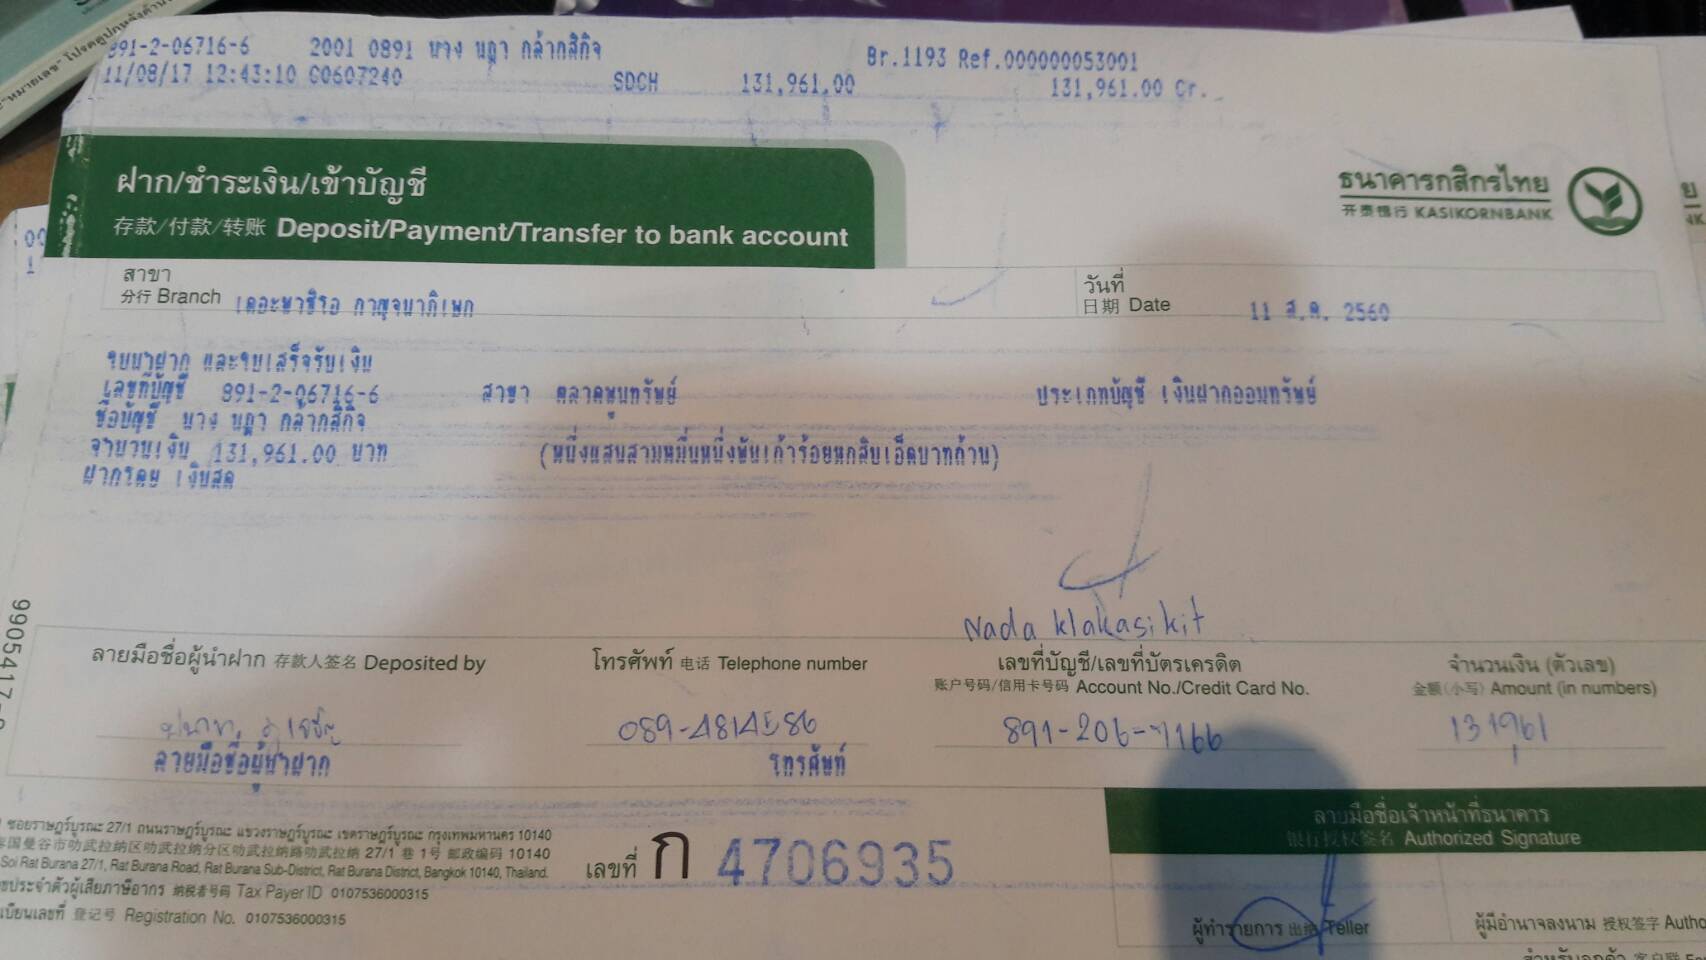 891-2-06716-6 2001 0891 นาง นฎา กล้ากสิกิจ Br.1193 Ref.000000053001
11/08/17 12:43:10 C0607240 SDCH 131,961.00 131,961.00 Cr.
ฝาก/ชำระเงิน/เข้าบัญชี
存款/付款/转账 Deposit/Payment/Transfer to bank account
ธนาคารกสิกรไทย
开泰银行 KASIKORNBANK
สาขา
分行 Branch เดอะพาซิโอ กาญจนาภิเษก
วันที่
日期 Date 11 ส.ค. 2560
ใบนำฝาก และใบเสร็จรับเงิน
เลขที่บัญชี 891-2-06716-6 สาขา ตลาดพูนทรัพย์ ประเภทบัญชี เงินฝากออมทรัพย์
ชื่อบัญชี นาง นฎา กล้ากสิกิจ
จำนวนเงิน 131,961.00 บาท (หนึ่งแสนสามหมื่นหนึ่งพันเก้าร้อยหกสิบเอ็ดบาทถ้วน)
ฝากโดย เงินสด
Nada klakasikit
ลายมือชื่อผู้นำฝาก 存款人签名 Deposited by
โทรศัพท์ 电话 Telephone number
เลขที่บัญชี/เลขที่บัตรเครดิต
账户号码/信用卡号码 Account No./Credit Card No.
จำนวนเงิน (ตัวเลข)
金额(小写) Amount (in numbers)
089-4814586 891-206-7166 131961
ลายมือชื่อผู้นำฝาก โทรศัพท์
ซอยราษฎร์บูรณะ 27/1 ถนนราษฎร์บูรณะ แขวงราษฎร์บูรณะ เขตราษฎร์บูรณะ กรุงเทพมหานคร 10140
国曼谷市叻武拉纳区叻武拉纳分区叻武拉纳路叻武拉纳 27/1 巷 1号 邮政编码 10140
Soi Rat Burana 27/1, Rat Burana Road, Rat Burana Sub-District, Rat Burana District, Bangkok 10140, Thailand.
ประจำตัวผู้เสียภาษีอากร 纳税者号码 Tax Payer ID 0107536000315
เบียนเลขที่ 登记号 Registration No. 0107536000315
เลขที่ ก 4706935
ลายมือชื่อเจ้าหน้าที่ธนาคาร
银行授权签名 Authorized Signature
ผู้ทำรายการ 出纳 Teller
ผู้มีอำนาจลงนาม 授权签字 Autho
สำหรับลูกค้า 客户联
9905417